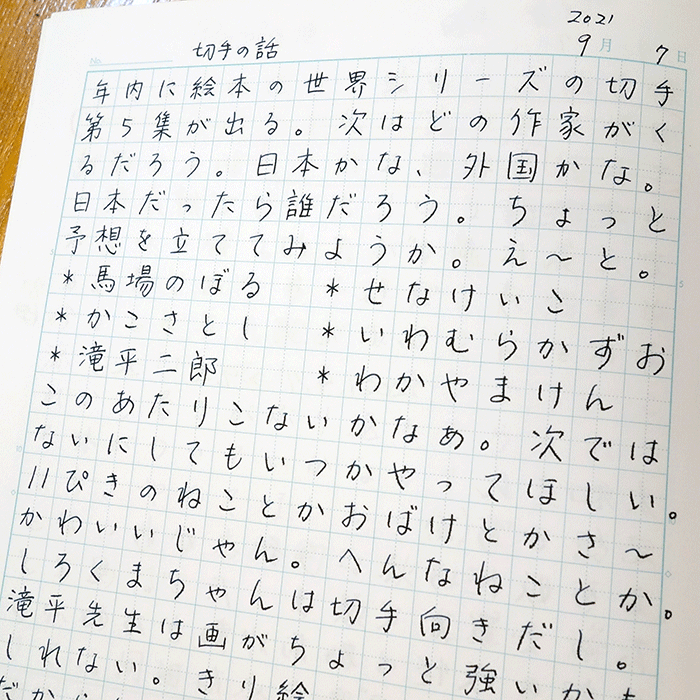 2021
No. 切手の話 9月 7日
年内に絵本の世界シリーズの切手
第5集が出る。次はどの作家がく
るだろう。日本かな、外国かな。
日本だったら誰だろう。ちょっと
予想を立ててみようか。え〜と。
*馬場のぼる *せなけいこ
*かこさとし *いわむらかずお
*滝平二郎 *わかやまけん
このあたりこないかなあ。次では
ないにしてもいつかやってほしい。
11ぴきのねことかおばけとかさ〜
かわいいじゃん。へんなねことか。
しろくまちゃんは切手向きだし。
滝平先生は画がちょっと強いかも
しれない。きり絵
だから